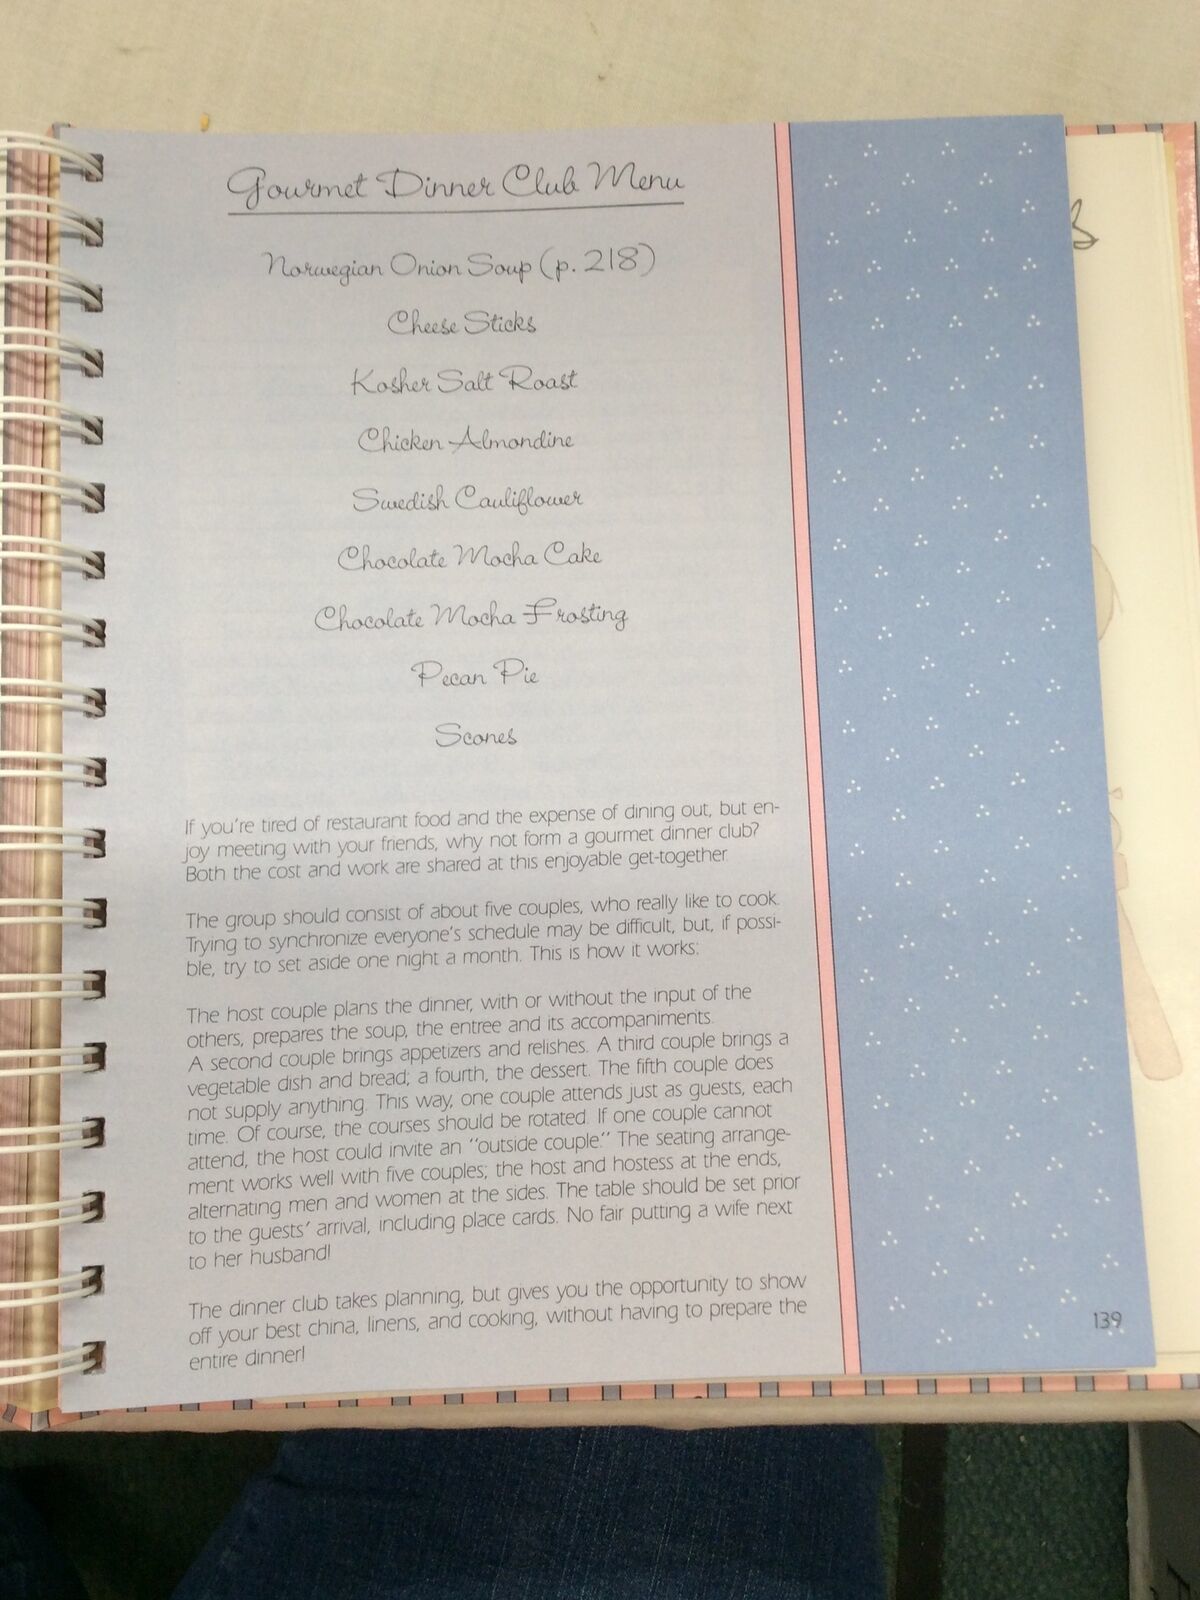 Gourmet Dinner Club Menu
Norwegian Onion Soup (p. 218)
Cheese Sticks
Kosher Salt Roast
Chicken Almondine
Swedish Cauliflower
Chocolate Mocha Cake
Chocolate Mocha Frosting
Pecan Pie
Scones
If you're tired of restaurant food and the expense of dining out, but en-
joy meeting with your friends, why not form a gourmet dinner club?
Both the cost and work are shared at this enjoyable get-together.
The group should consist of about five couples, who really like to cook.
Trying to synchronize everyone's schedule may be difficult, but, if possi-
ble, try to set aside one night a month. This is how it works:
The host couple plans the dinner, with or without the input of the
others, prepares the soup, the entree and its accompaniments.
A second couple brings appetizers and relishes. A third couple brings a
vegetable dish and bread; a fourth, the dessert. The fifth couple does
not supply anything. This way, one couple attends just as guests, each
time. Of course, the courses should be rotated. If one couple cannot
attend, the host could invite an "outside couple." The seating arrange-
ment works well with five couples; the host and hostess at the ends,
alternating men and women at the sides. The table should be set prior
to the guests' arrival, including place cards. No fair putting a wife next
to her husband!
The dinner club takes planning, but gives you the opportunity to show
off your best china, linens, and cooking, without having to prepare the
entire dinner!
139